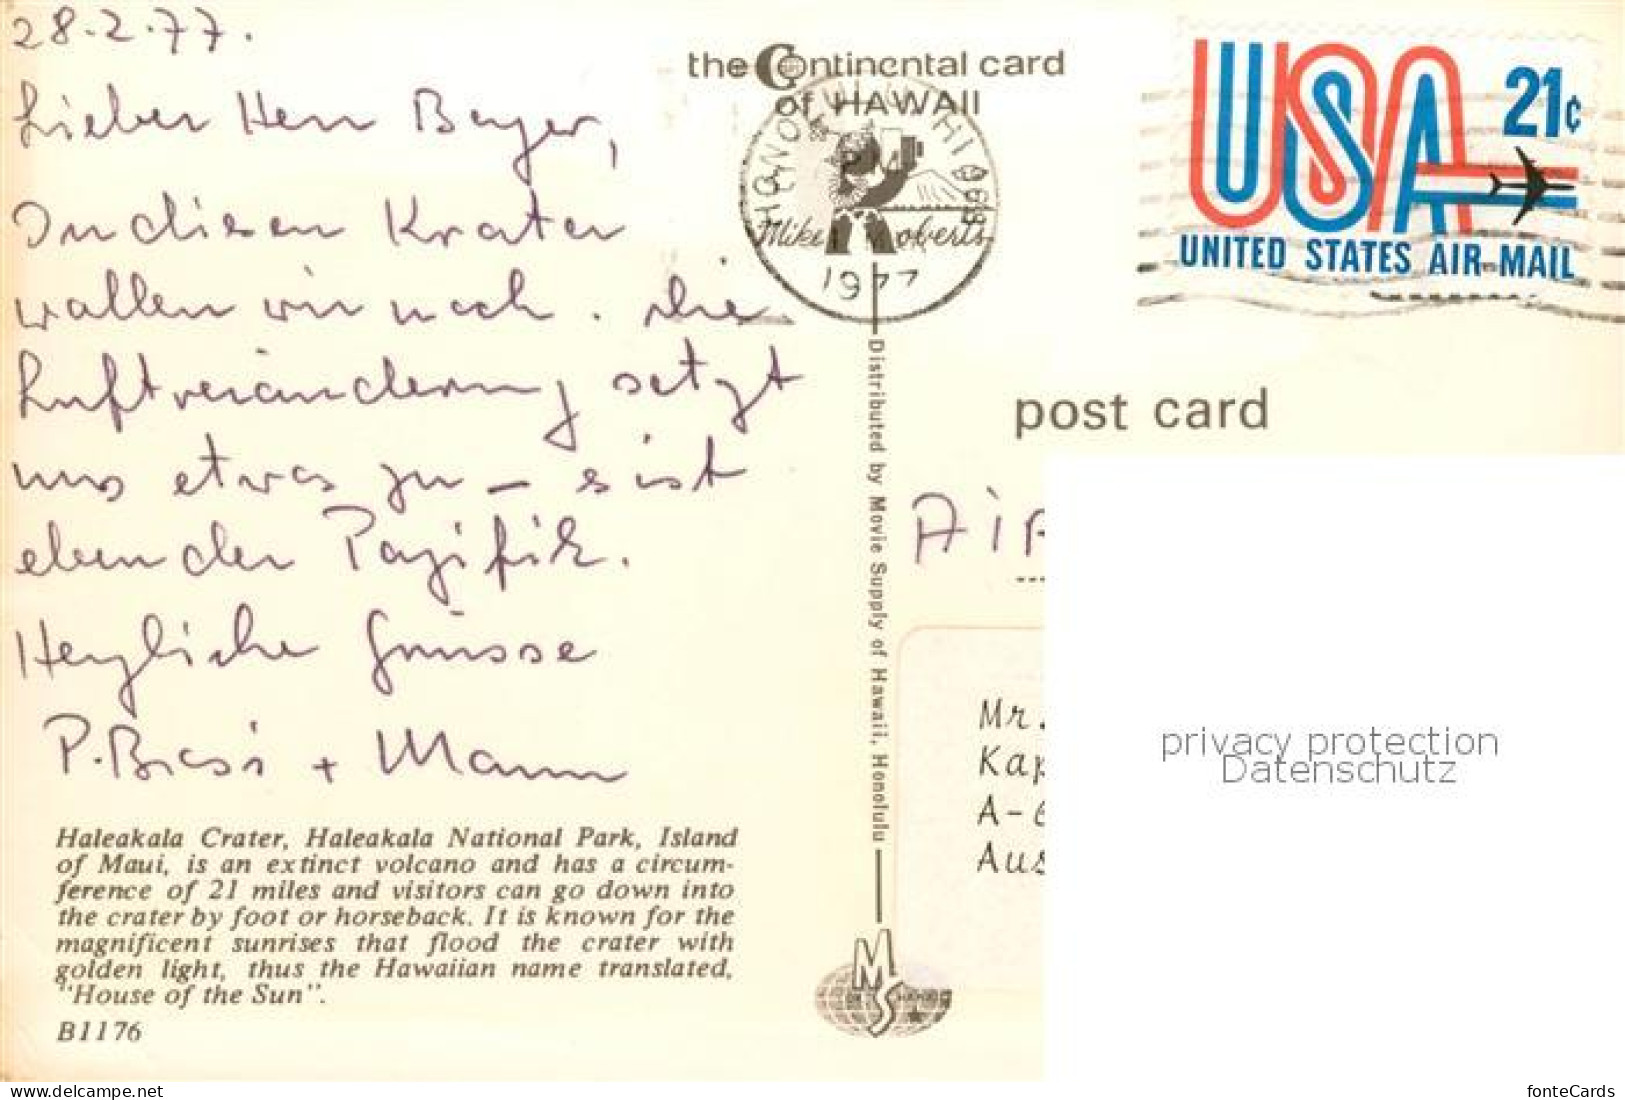 28.2.77.
Lieber Herr Berger,
In diesen Krater
wollen wir noch. Die
Luftveränderung setzt
uns etwas zu – es ist
eben der Pazifik.
Herzliche Grüsse
P. + Mann
Haleakala Crater, Haleakala National Park, Island
of Maui, is an extinct volcano and has a circum-
ference of 21 miles and visitors can go down into
the crater by foot or horseback. It is known for the
magnificent sunrises that flood the crater with
golden light, thus the Hawaiian name translated,
"House of the Sun".
B1176
the Continental card
of HAWAII
HONOLULU, HI 968
PM
1977
Mike Roberts
Distributed by Movie Supply of Hawaii, Honolulu
MS
21c
USA
UNITED STATES AIR MAIL
post card
AIR
Mr.
Kap
A-6
Aus
privacy protection
Datenschutz
www.delcampe.net
fonteCards